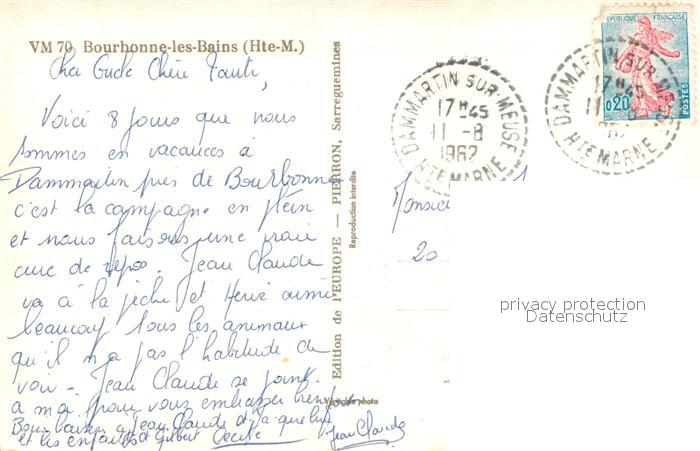 VM 70 Bourbonne-les-Bains (Hte-M.)
Cher Oncle Chère Tante,
Voici 8 jours que nous
sommes en vacances à
Dammartin près de Bourbonne
c'est la campagne en plein
et nous faisons une vraie
cure de repos. Jean Claude
va à la pêche et Hervé aime
beaucoup tous les animaux
qu'il n'a pas l'habitude de
voir - Jean Claude se joint
à moi pour vous embrasser bien fort
Bons baisers à Jean Claude et Jaqueline
et les enfants et Gilbert Cécile Jean Claude
Edition de l'EUROPE — PIERRON, Sarreguemines
Reproduction interdite
Véritable photo
DAMMARTIN SUR MEUSE
17H45
11-8
1962
HTE MARNE
DAMMARTIN SUR MEUSE
17H45
11
HTE MARNE
REPUBLIQUE FRANÇAISE
0,20
POSTES
Monsieur
20
privacy protection
Datenschutz